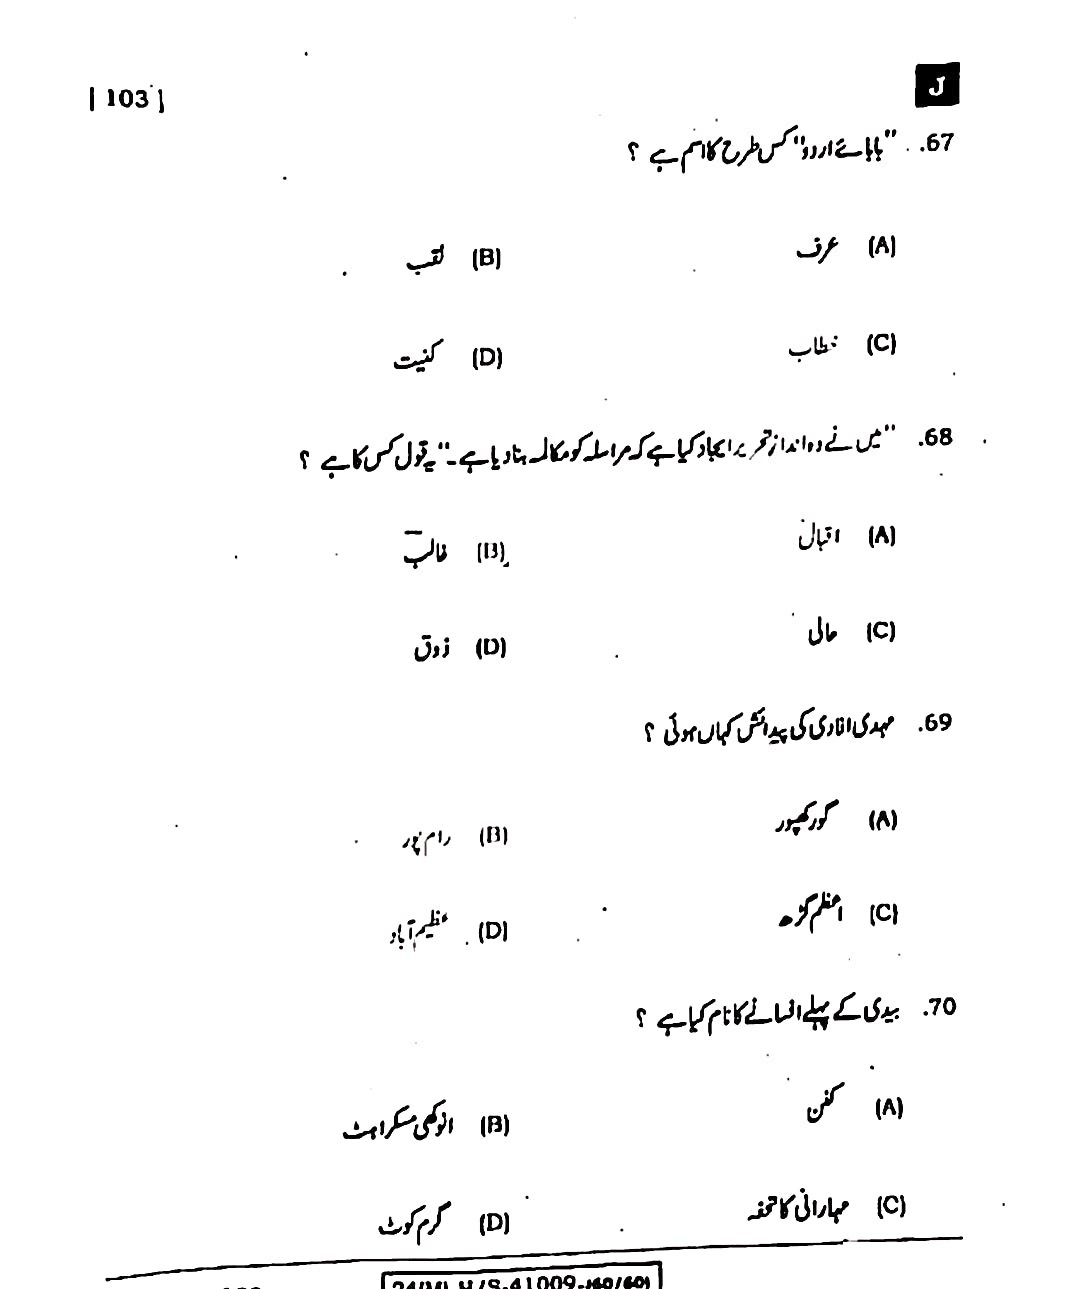 | 103 |
J
67. "بابائے اردو" کس طرح کا اسم ہے ؟
(A) عرف (B) لقب
(C) خطاب (D) کنیت
68. "میں نے وہ انداز تحریر ایجاد کیا ہے کہ مراسلہ کو مکالمہ بنا دیا ہے۔" یہ قول کس کا ہے ؟
(A) اقبال (B) غالب
(C) حالی (D) ذوق
69. مہدی افادی کی پیدائش کہاں ہوئی ؟
(A) گورکھپور (B) رام پور
(C) اعظم گڑھ (D) عظیم آباد
70. بیدی کے پہلے افسانے کا نام کیا ہے ؟
(A) کفن (B) انوکھی مسکراہٹ
(C) مہارانی کا تحفہ (D) گرم کوٹ
24(M) H/S-41009-(60/60)